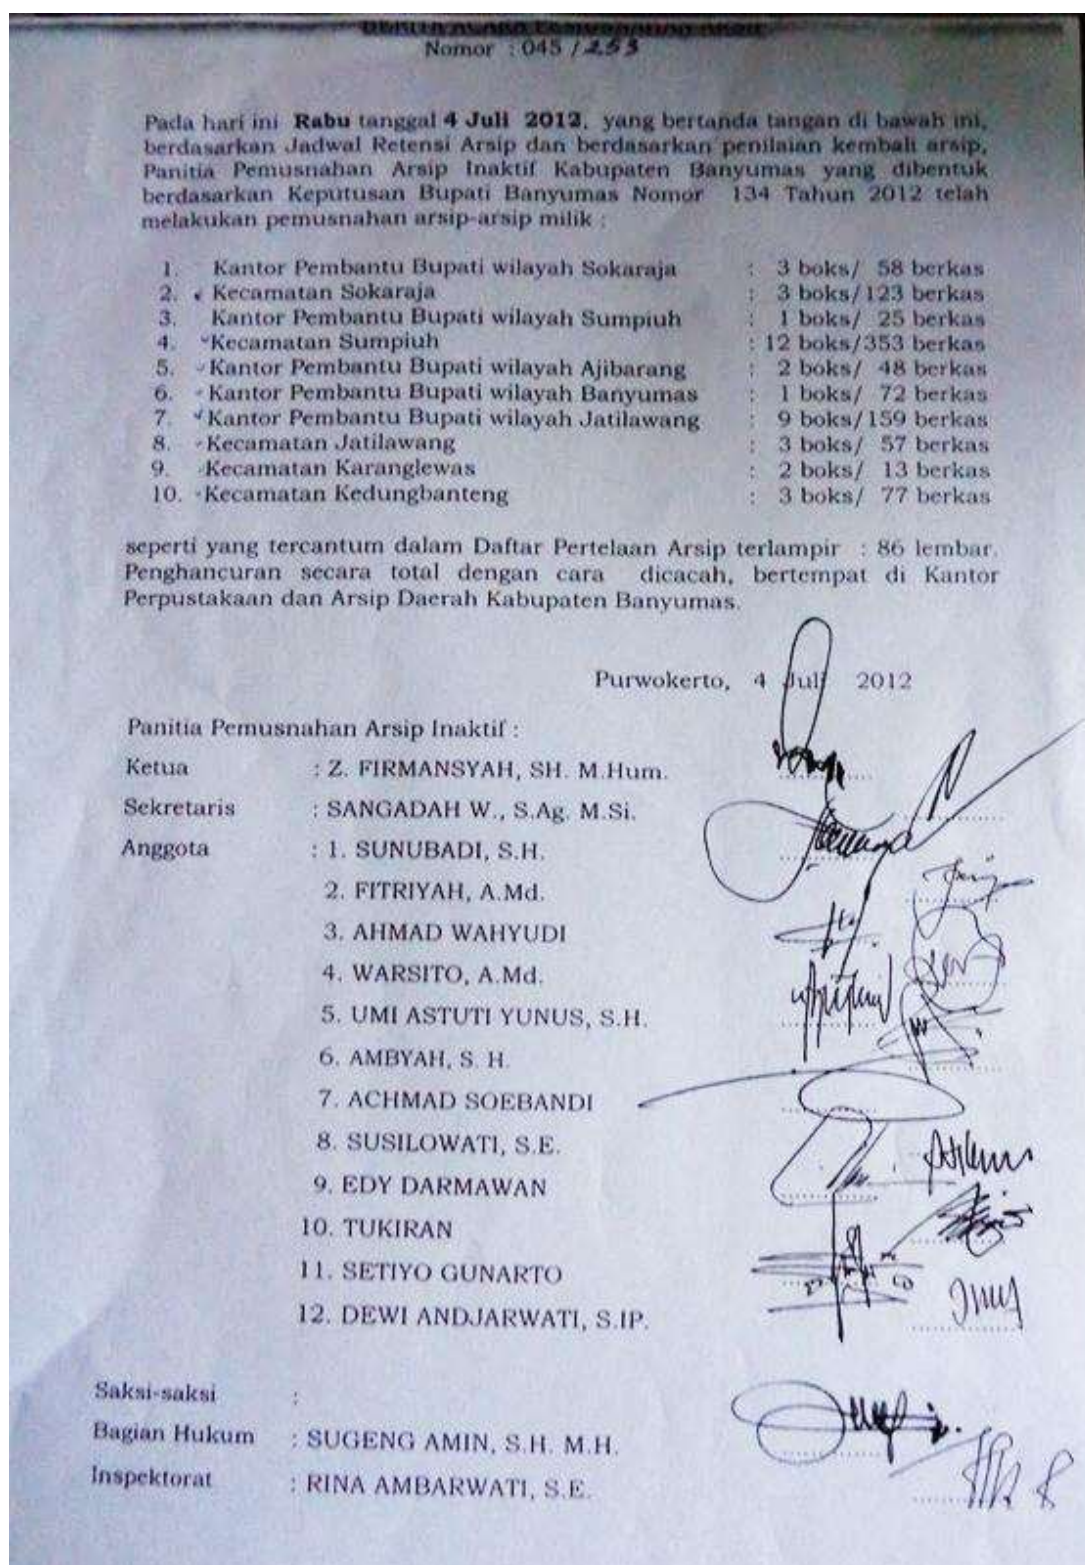 BERITA ACARA PEMUSNAHAN ARSIP
Nomor : 045 / 253
Pada hari ini Rabu tanggal 4 Juli 2012, yang bertanda tangan di bawah ini,
berdasarkan Jadwal Retensi Arsip dan berdasarkan penilaian kembali arsip,
Panitia Pemusnahan Arsip Inaktif Kabupaten Banyumas yang dibentuk
berdasarkan Keputusan Bupati Banyumas Nomor 134 Tahun 2012 telah
melakukan pemusnahan arsip-arsip milik :
1. Kantor Pembantu Bupati wilayah Sokaraja : 3 boks/ 58 berkas
2. Kecamatan Sokaraja : 3 boks/123 berkas
3. Kantor Pembantu Bupati wilayah Sumpiuh : 1 boks/ 25 berkas
4. Kecamatan Sumpiuh : 12 boks/353 berkas
5. Kantor Pembantu Bupati wilayah Ajibarang : 2 boks/ 48 berkas
6. Kantor Pembantu Bupati wilayah Banyumas : 1 boks/ 72 berkas
7. Kantor Pembantu Bupati wilayah Jatilawang : 9 boks/159 berkas
8. Kecamatan Jatilawang : 3 boks/ 57 berkas
9. Kecamatan Karanglewas : 2 boks/ 13 berkas
10. Kecamatan Kedungbanteng : 3 boks/ 77 berkas
seperti yang tercantum dalam Daftar Pertelaan Arsip terlampir : 86 lembar.
Penghancuran secara total dengan cara dicacah, bertempat di Kantor
Perpustakaan dan Arsip Daerah Kabupaten Banyumas.
Purwokerto, 4 Juli 2012
Panitia Pemusnahan Arsip Inaktif :
Ketua : Z. FIRMANSYAH, SH. M.Hum.
Sekretaris : SANGADAH W., S.Ag. M.Si.
Anggota : 1. SUNUBADI, S.H.
2. FITRIYAH, A.Md.
3. AHMAD WAHYUDI
4. WARSITO, A.Md.
5. UMI ASTUTI YUNUS, S.H.
6. AMBYAH, S. H.
7. ACHMAD SOEBANDI
8. SUSILOWATI, S.E.
9. EDY DARMAWAN
10. TUKIRAN
11. SETIYO GUNARTO
12. DEWI ANDJARWATI, S.IP.
Saksi-saksi :
Bagian Hukum : SUGENG AMIN, S.H. M.H.
Inspektorat : RINA AMBARWATI, S.E.